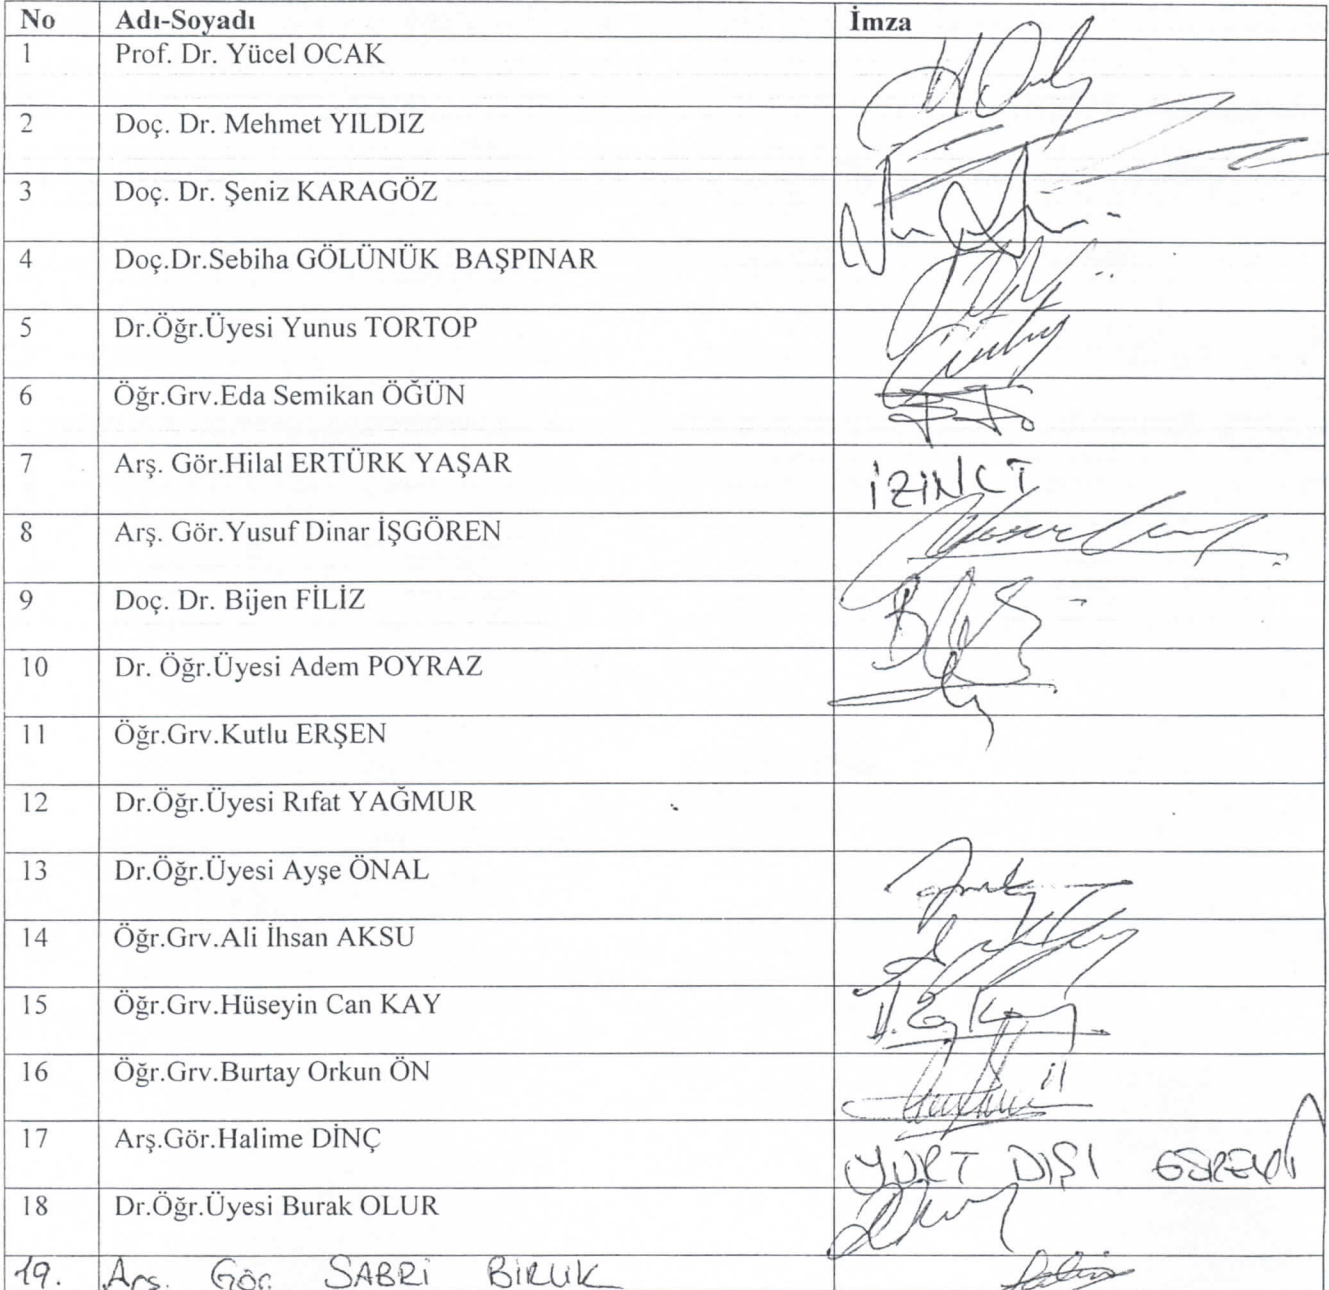 No Adı-Soyadı İmza
1 Prof. Dr. Yücel OCAK
2 Doç. Dr. Mehmet YILDIZ
3 Doç. Dr. Şeniz KARAGÖZ
4 Doç.Dr.Sebiha GÖLÜNÜK BAŞPINAR
5 Dr.Öğr.Üyesi Yunus TORTOP
6 Öğr.Grv.Eda Semikan ÖĞÜN
7 Arş. Gör.Hilal ERTÜRK YAŞAR
8 Arş. Gör.Yusuf Dinar İŞGÖREN
9 Doç. Dr. Bijen FİLİZ
10 Dr. Öğr.Üyesi Adem POYRAZ
11 Öğr.Grv.Kutlu ERŞEN
12 Dr.Öğr.Üyesi Rıfat YAĞMUR
13 Dr.Öğr.Üyesi Ayşe ÖNAL
14 Öğr.Grv.Ali İhsan AKSU
15 Öğr.Grv.Hüseyin Can KAY
16 Öğr.Grv.Burtay Orkun ÖN
17 Arş.Gör.Halime DİNÇ YURT DIŞI
18 Dr.Öğr.Üyesi Burak OLUR
19. Arş. Gör. SABRİ BİRLİK